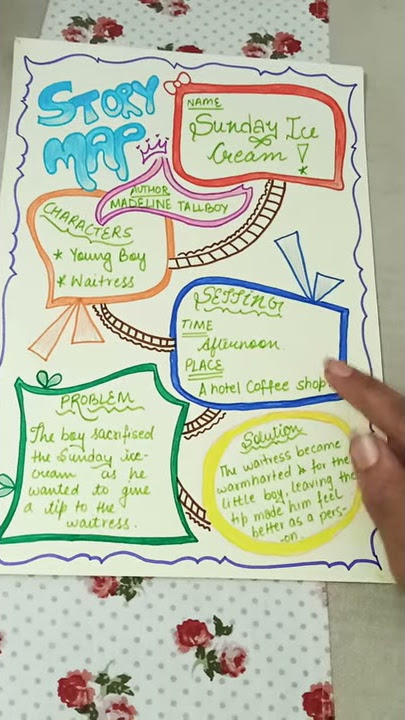 STORY
MAP
NAME
Sunday Ice
Cream
AUTHOR
MADELINE TALLBOY
CHARACTERS
* Young Boy
* Waitress
SETTING
TIME
Afternoon
PLACE
A hotel Coffee shop
PROBLEM
The boy sacrifised
the Sunday ice-
cream as he
wanted to give
a tip to the
waitress.
Solution
The waitress became
warmharted & for the
little boy, leaving the
tip made him feel
better as a pers-
-on.